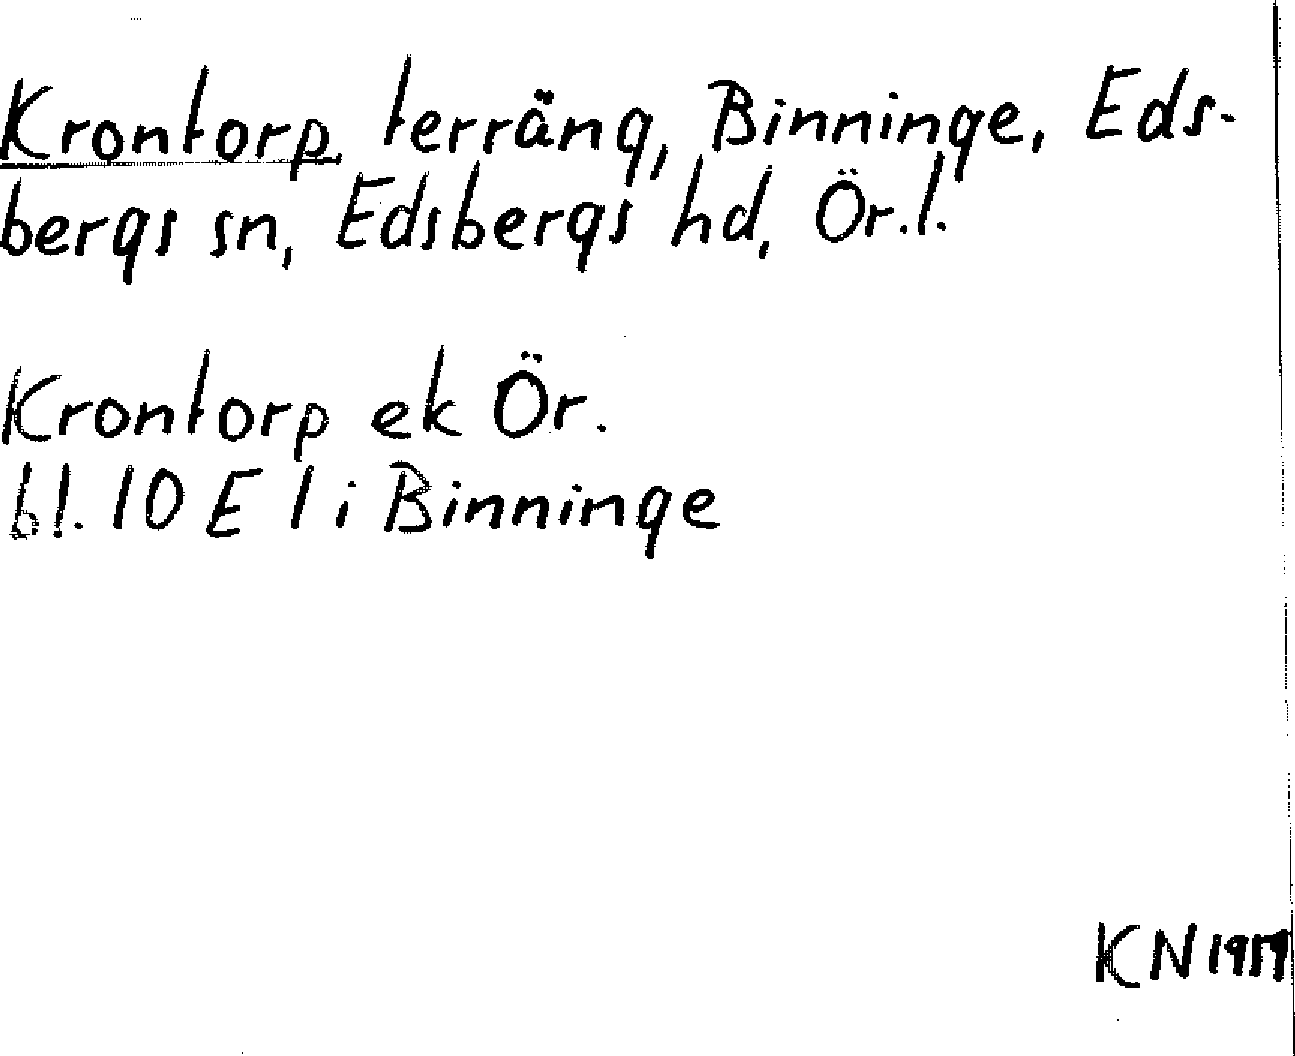 Krontorp, terräng, Binninge, Eds-
bergs sn, Edsbergs hd, Ör.l.
Krontorp ek Ör.
bl. 10 E 1 i Binninge
KN 1959